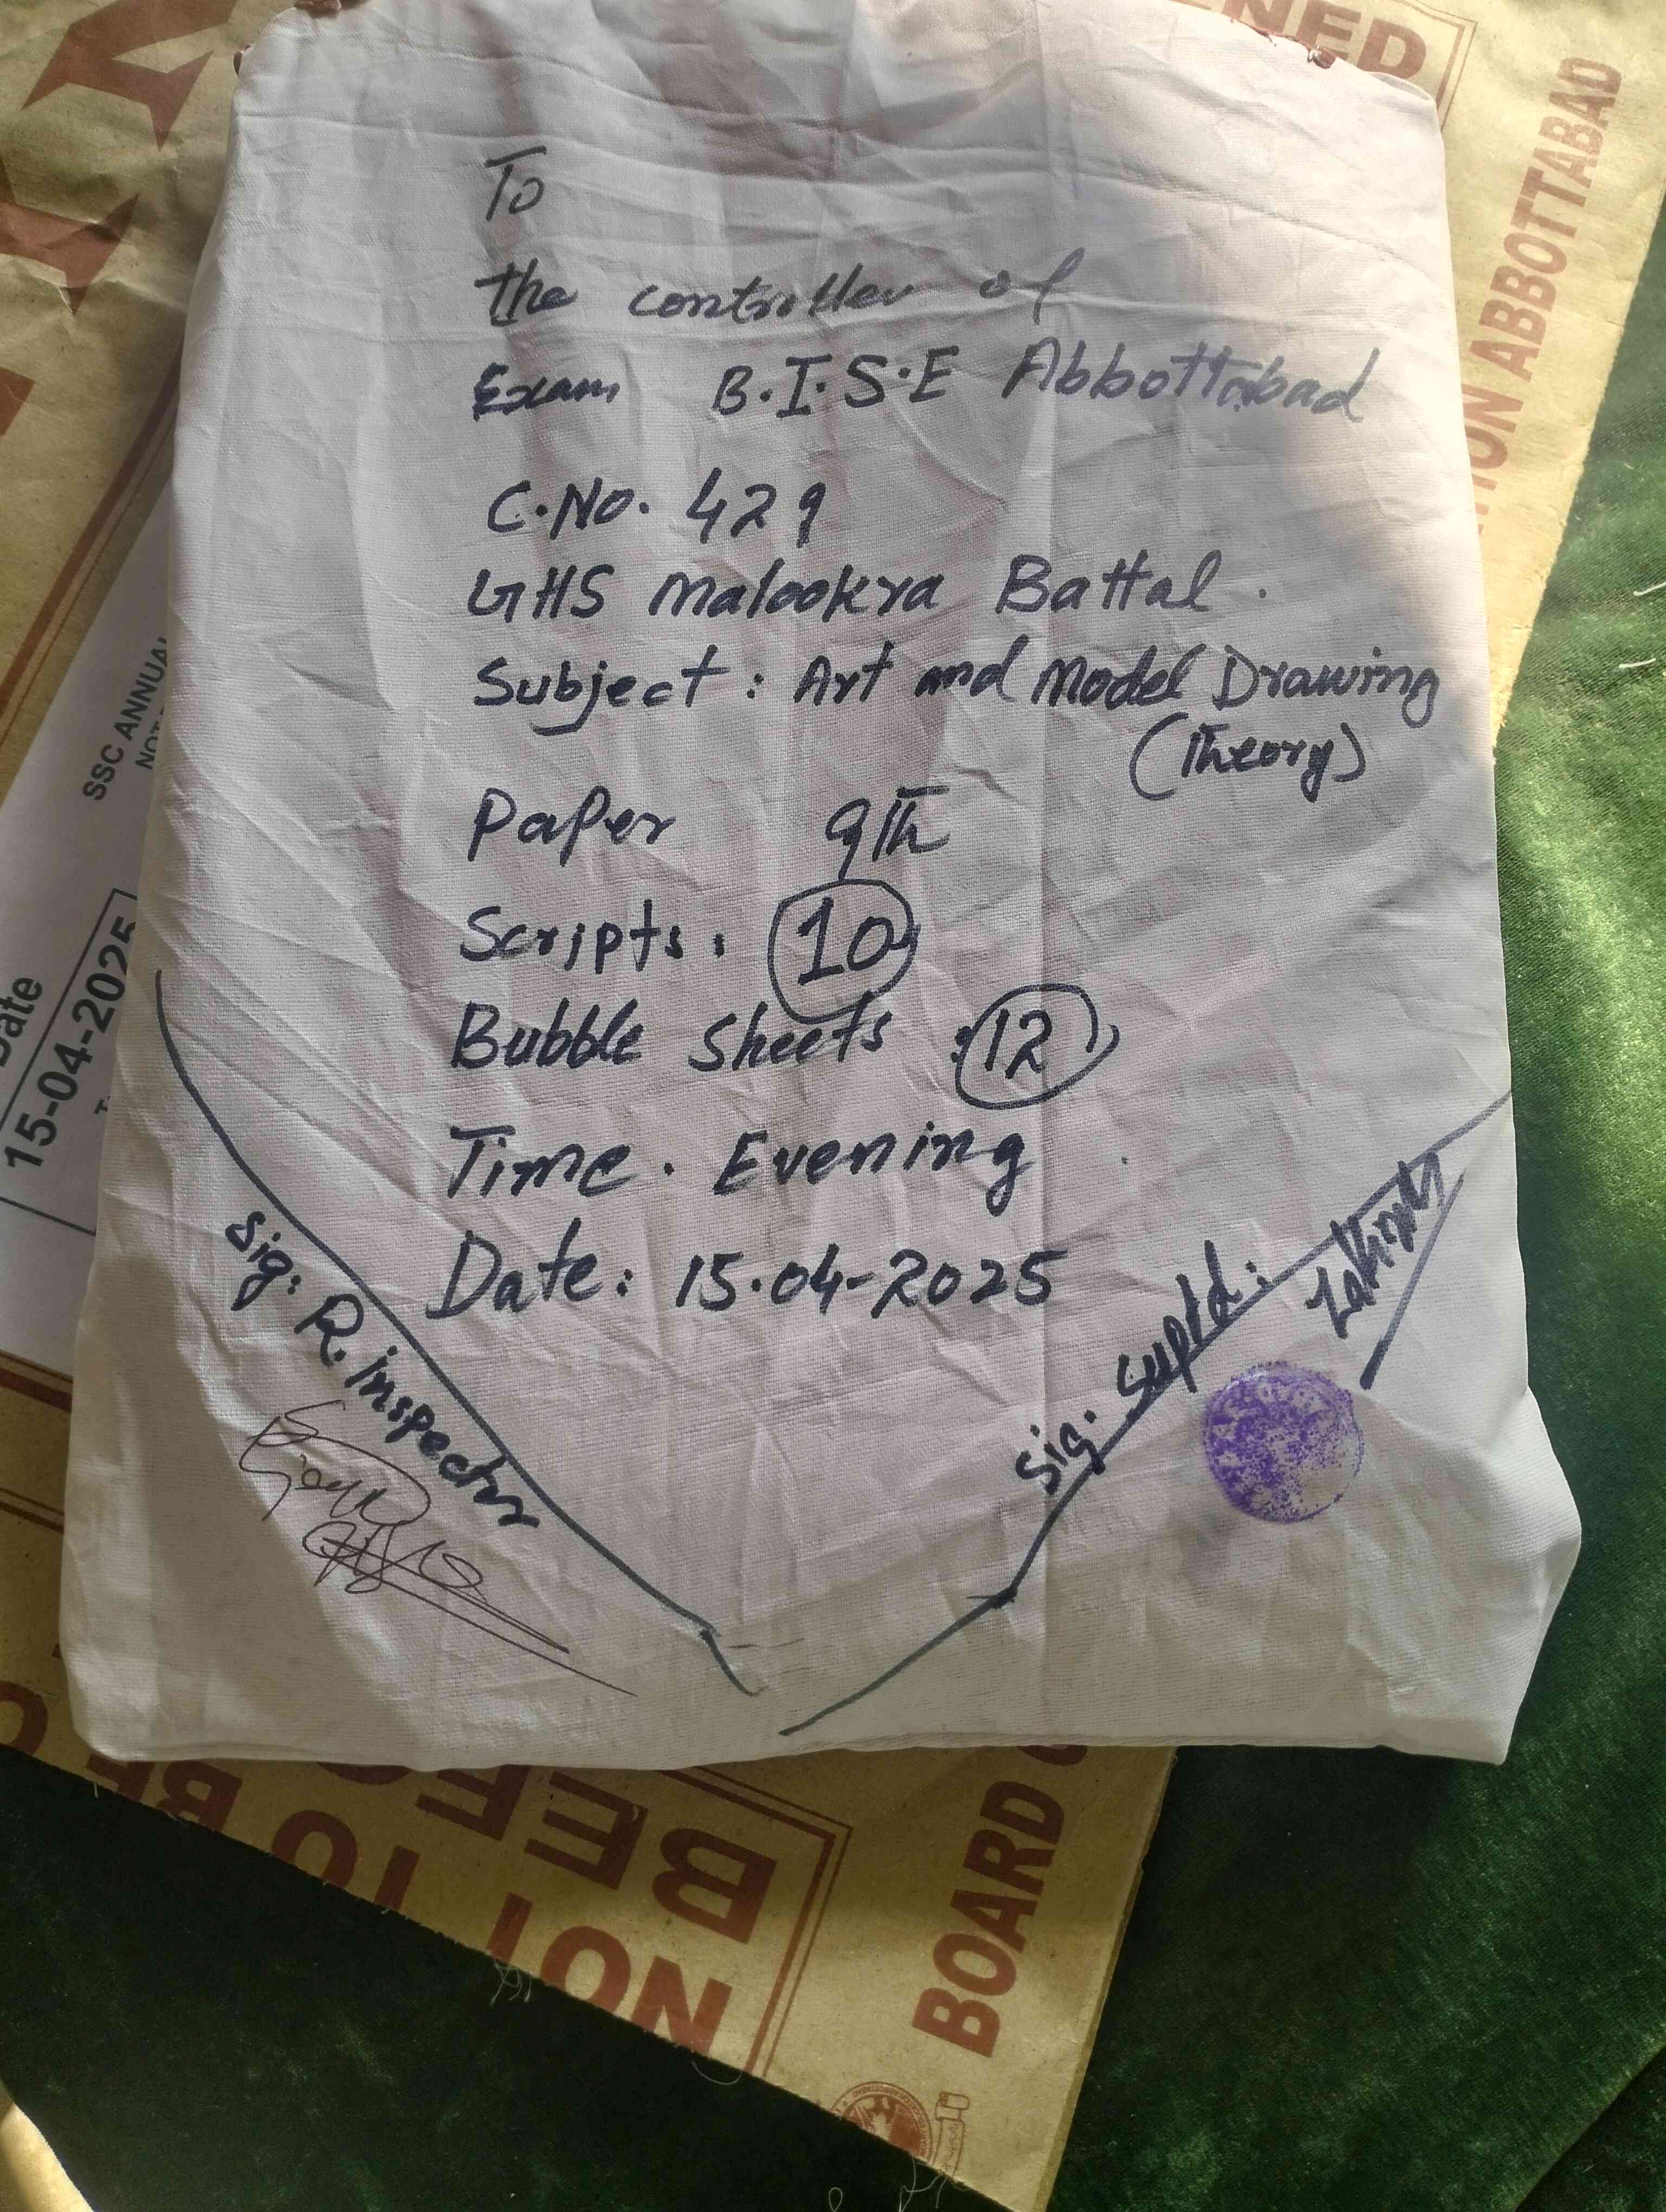 To
the controller of
Exam B.I.S.E Abbottabad
C.No. 429
GHS Malookra Battal.
Subject: Art and Model Drawing
(Theory)
Paper 9th
Scripts: 10
Bubble Sheets: 12
Time. Evening
Date: 15.04-2025
Sig: R. inspector
Sig. Suptd:
NED
TION ABBOTTABAD
SSC ANNUAL
NOT
Date
15-04-2025
NOT TO BE
BEFO
BOARD O